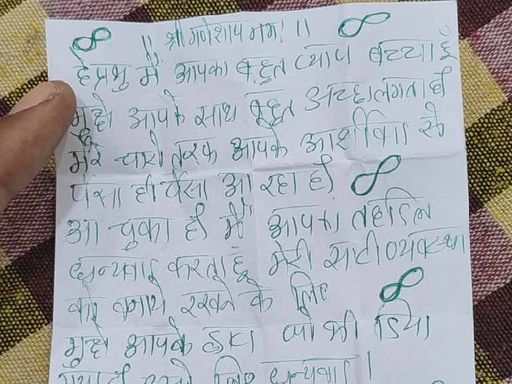 ॥ श्री गणेशाय नमः ॥
हे प्रभु मैं आपका बहुत प्यारा बच्चा हूँ
मुझे आपके साथ बहुत अच्छा लगता है
मेरे चारो तरफ आपके आर्शीवाद से
पैसा ही पैसा आ रहा है।
आ चुका है मैं आपका तहदिल
धन्यवाद करता हूँ मेरी सारी व्यवस्था
को बनाये रखने के लिए
मुझे आपके द्वारा जो भी दिया
गया है उसके लिए धन्यवाद।